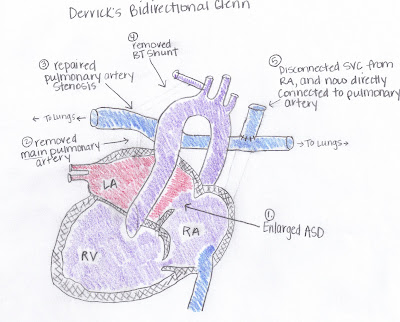 Derrick's Bidirectional Glenn
④
removed
BT shunt
③ repaired
pulmonary artery
Stenosis
⑤
Disconnected SVC from
RA, and now directly
connected to pulmonary
artery
← To Lungs →
② removed
main pulmonary
artery
→ To Lungs →
LA
①
Enlarged ASD
RA
RV